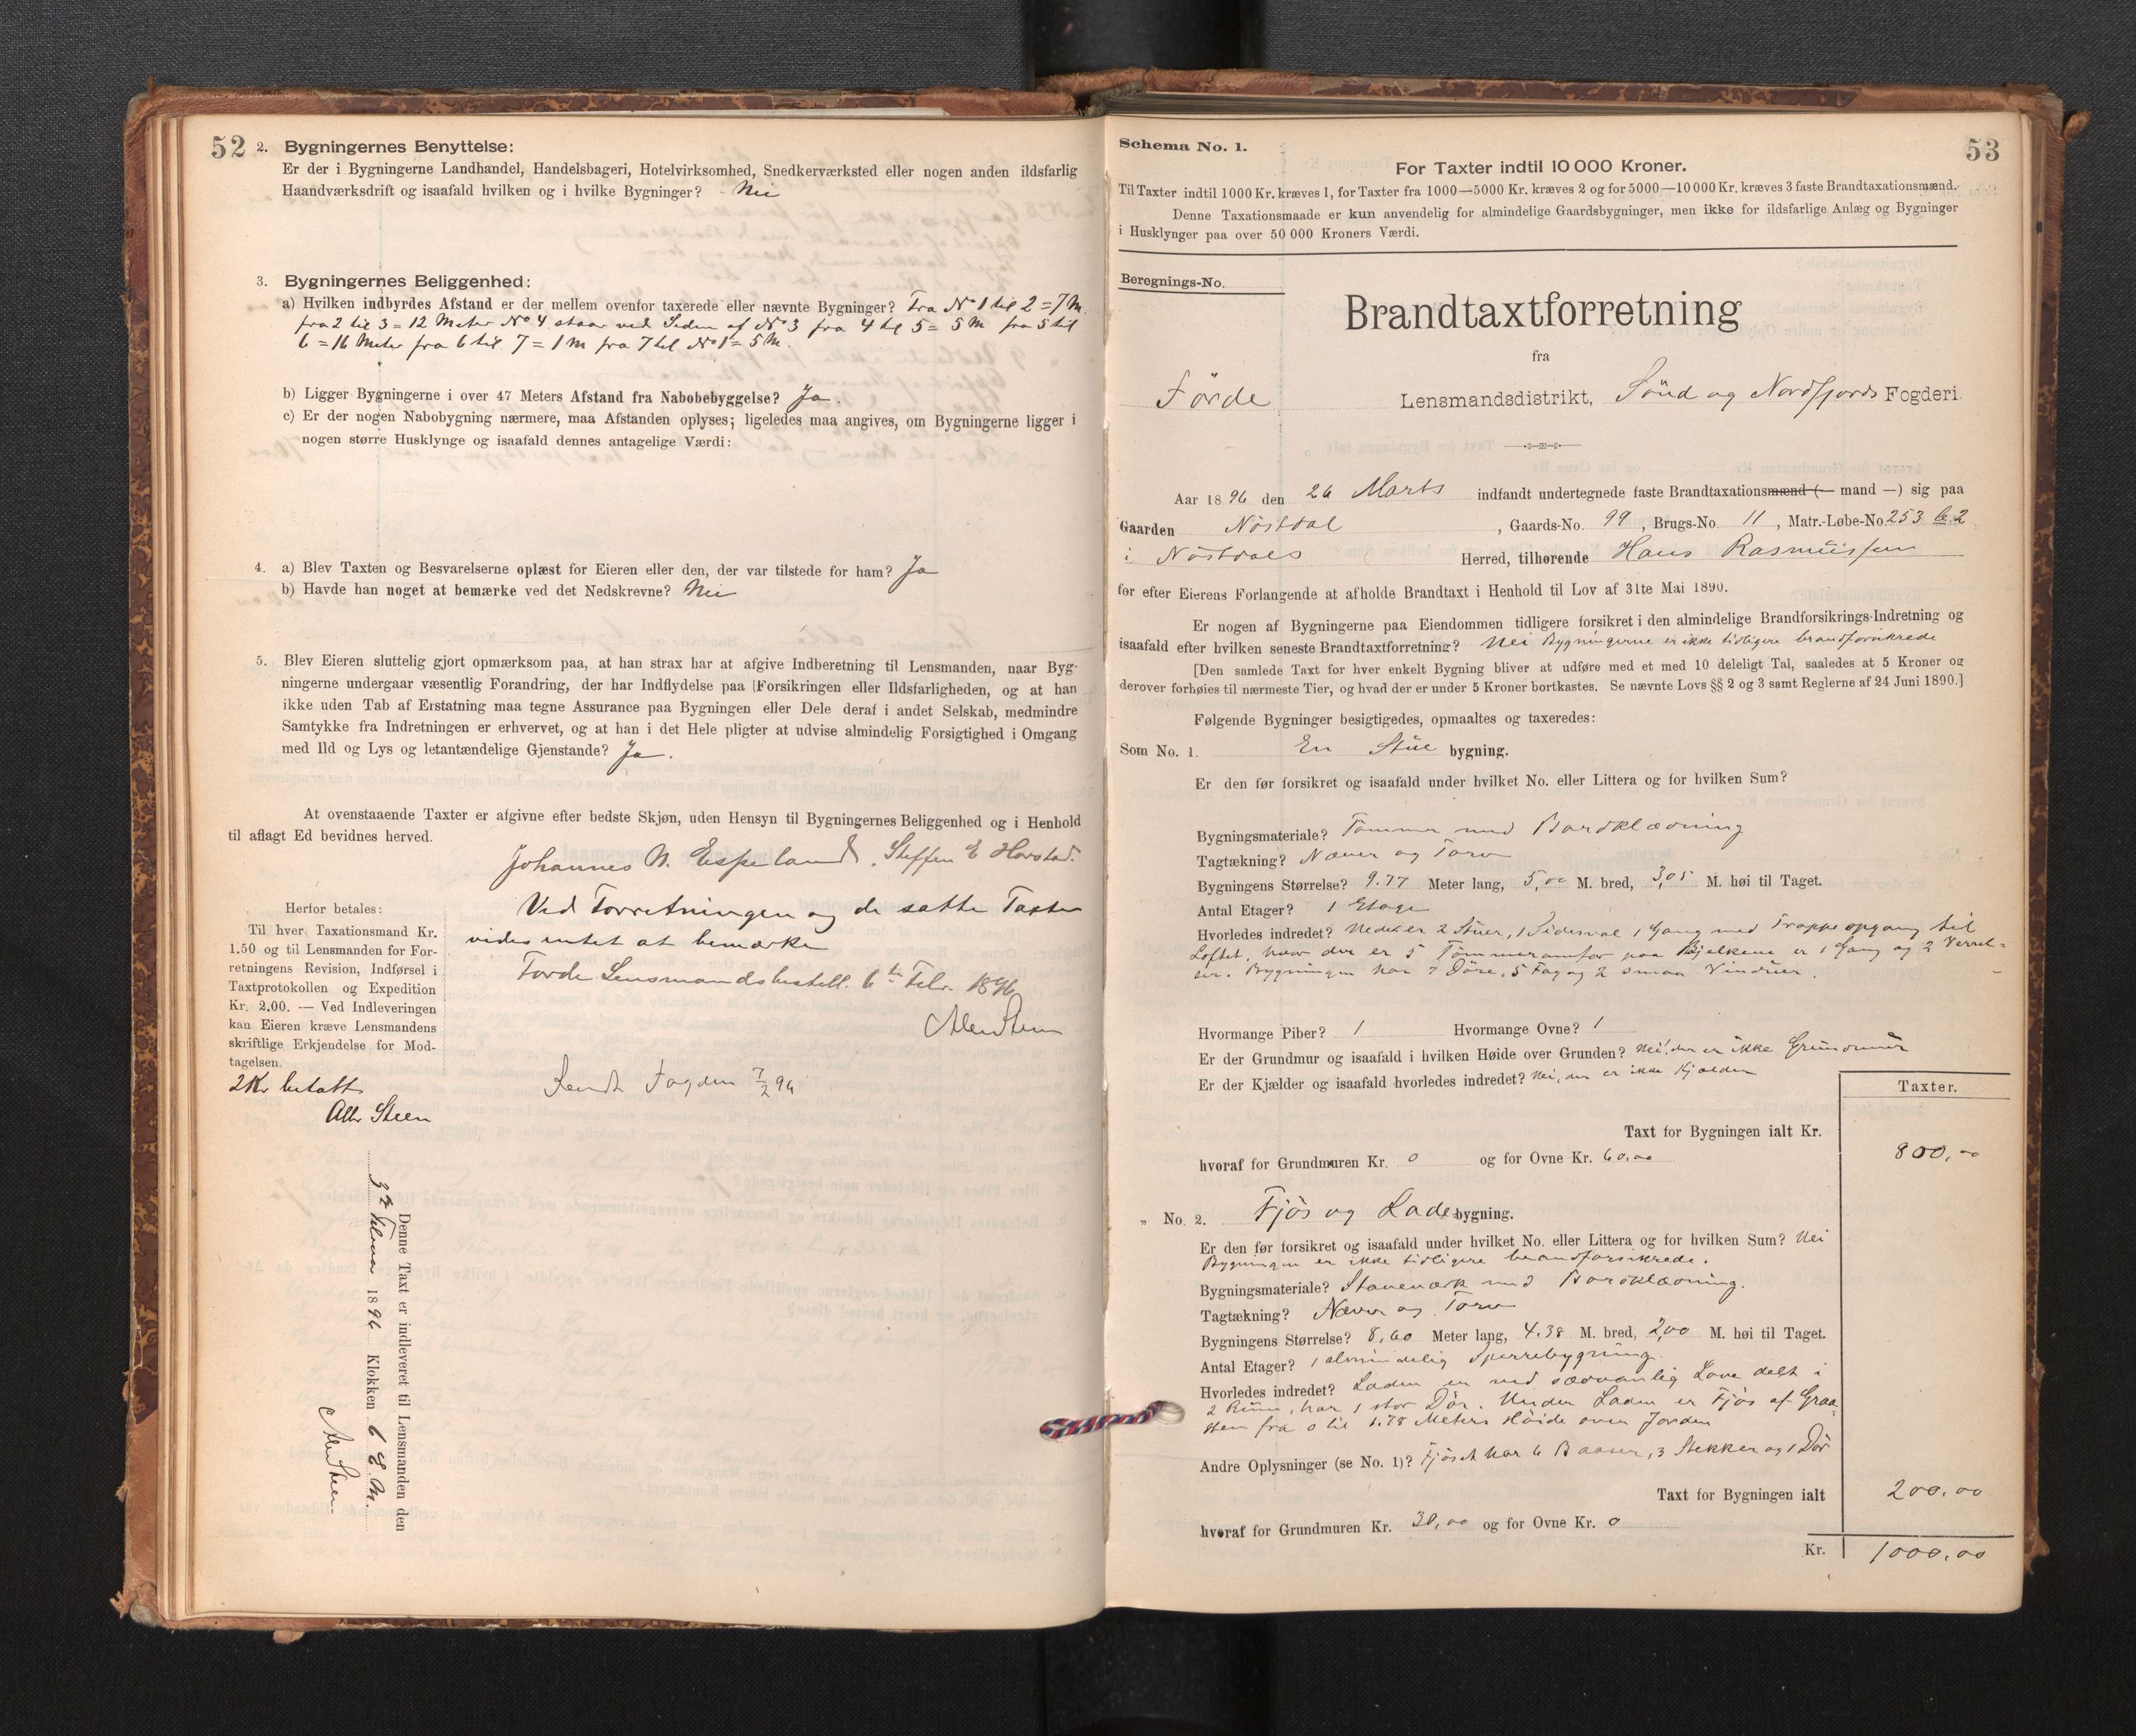 52
2. Bygningernes Benyttelse:
Er der i Bygningerne Landhandel, Handelsbageri, Hotelvirksomhed, Snedkerværksted eller nogen anden ildsfarlig
Haandværksdrift og isaafald hvilken og i hvilke Bygninger? - Nei
3. Bygningernes Beliggenhed:
a) Hvilken indbyrdes Afstand er der mellem ovenfor taxerede eller nævnte Bygninger? Fra No 1 til 2 = 7 M.
fra 2 til 3 = 12 Meter No 4 staar ved Siden af No 3 fra 4 til 5 = 5 M fra 5 til
6 = 16 Meter fra 6 til 7 = 1 M fra 7 til No 1 = 5 M.
b) Ligger Bygningerne i over 47 Meters Afstand fra Nabobebyggelse? Ja
c) Er der nogen Nabobygning nærmere, maa Afstanden oplyses; ligeledes maa angives, om Bygningerne ligger i
nogen større Husklynge og isaafald dennes antagelige Værdi:
4. a) Blev Taxten og Besvarelserne oplæst for Eieren eller den, der var tilstede for ham? Ja
b) Havde han noget at bemærke ved det Nedskrevne? Nei
5. Blev Eieren sluttelig gjort opmærksom paa, at han strax har at afgive Indberetning til Lensmanden, naar Byg-
ningerne undergaar væsentlig Forandring, der har Indflydelse paa Forsikringen eller Ildsfarligheden, og at han
ikke uden Tab af Erstatning maa tegne Assurance paa Bygningen eller Dele deraf i andet Selskab, medmindre
Samtykke fra Indretningen er erhvervet, og at han i det Hele pligter at udvise almindelig Forsigtighed i Omgang
med Ild og Lys og letantændelige Gjenstande? Ja.
At ovenstaaende Taxter er afgivne efter bedste Skjøn, uden Hensyn til Bygningernes Beliggenhed og i Henhold
til aflagt Ed bevidnes herved.
Johannes N. Espeland, Steffen E Horstad.
Ved Forretningen og de satte Taxter
vides intet at bemærke
Førde Lensmandsbestill. 6te Febr. 1896
Herfor betales:
Til hver Taxationsmand Kr.
1.50 og til Lensmanden for For-
retningens Revision, Indførsel i
Taxtprotokollen og Expedition
Kr. 2.00. — Ved Indleveringen
kan Eieren kræve Lensmandens
skriftlige Erkjendelse for Mod-
tagelsen.
2 Kr betalt
Alb Steen
Sendt Fogden 7/2 96
Denne Taxt er indleveret til Lensmanden den
3de Februar 1896 Klokken 6 E M.
53
Schema No. 1.
For Taxter indtil 10 000 Kroner.
Til Taxter indtil 1000 Kr. kræves 1, for Taxter fra 1000—5000 Kr. kræves 2 og for 5000—10 000 Kr. kræves 3 faste Brandtaxationsmænd.
Denne Taxationsmaade er kun anvendelig for almindelige Gaardsbygninger, men ikke for ildsfarlige Anlæg og Bygninger
i Husklynger paa over 50 000 Kroners Værdi.
Beregnings-No.
Brandtaxtforretning
fra
Förde Lensmandsdistrikt, Sönd og Nordfjords Fogderi.
Aar 1896 den 26 Marts indfandt undertegnede faste Brandtaxationsmænd (— mand —) sig paa
Gaarden Nöstdal, Gaards-No. 99, Brugs-No. 11, Matr.-Løbe-No 253 b.2
i Nöstdals Herred, tilhørende Hans Rasmussen
for efter Eierens Forlangende at afholde Brandtaxt i Henhold til Lov af 31te Mai 1890.
Er nogen af Bygningerne paa Eiendommen tidligere forsikret i den almindelige Brandforsikrings-Indretning og
isaafald efter hvilken seneste Brandtaxtforretning? Nei Bygningerne er ikke tidligere brandforsikrede
[Den samlede Taxt for hver enkelt Bygning bliver at udføre med et med 10 deleligt Tal, saaledes at 5 Kroner og
derover forhøies til nærmeste Tier, og hvad der er under 5 Kroner bortkastes. Se nævnte Lovs §§ 2 og 3 samt Reglerne af 24 Juni 1890.]
Følgende Bygninger besigtigedes, opmaaltes og taxeredes:
Som No. 1. En Stue bygning.
Er den før forsikret og isaafald under hvilket No. eller Littera og for hvilken Sum?
Bygningsmateriale? Tömmer med Bordklædning
Tagtækning? Næver og Torv
Bygningens Størrelse? 9.77 Meter lang, 5,00 M. bred, 3,05 M. høi til Taget.
Antal Etager? 1 Etage
Hvorledes indredet? Neder er 2 Stuer, 1 Sidesval 1 Gang med Trappeopgang til
Loftet, hvor der er 5 Tömmeromfar paa Bjelkene er 1 Gang og 2 Værel-
ser. Bygningen har 7 Döre, 5 Fag og 2 smaa Vinduer.
Hvormange Piber? 1 Hvormange Ovne? 1
Er der Grundmur og isaafald i hvilken Høide over Grunden? Nei, der er ikke Grundmur
Er der Kjælder og isaafald hvorledes indredet? Nei, der er ikke Kjælder
Taxter.
Taxt for Bygningen ialt Kr. 800,00
hvoraf for Grundmuren Kr. 0 og for Ovne Kr. 60.00
„ No. 2. Fjös og Ladebygning.
Er den før forsikret og isaafald under hvilket No. eller Littera og for hvilken Sum? Nei
Bygningen er ikke tidligere brandforsikrede.
Bygningsmateriale? Staveværk med Bordklædning.
Tagtækning? Næver og Torv
Bygningens Størrelse? 8,60 Meter lang, 4.38 M. bred, 2,00 M. høi til Taget.
Antal Etager? 1 almindelig Sperrebygning.
Hvorledes indredet? Laden er med sædvanlig Love delt i
2 Rum, har 1 stor Dör. Under Laden er Fjös af Graa-
sten fra 0 til 1.78 Meters Höide over Jorden
Andre Oplysninger (se No. 1)? Fjöset har 6 Baaser, 3 Stekker og 1 Dör
Taxt for Bygningen ialt 200.00
hvoraf for Grundmuren Kr. 30,00 og for Ovne Kr. 0
Kr. 1000.00